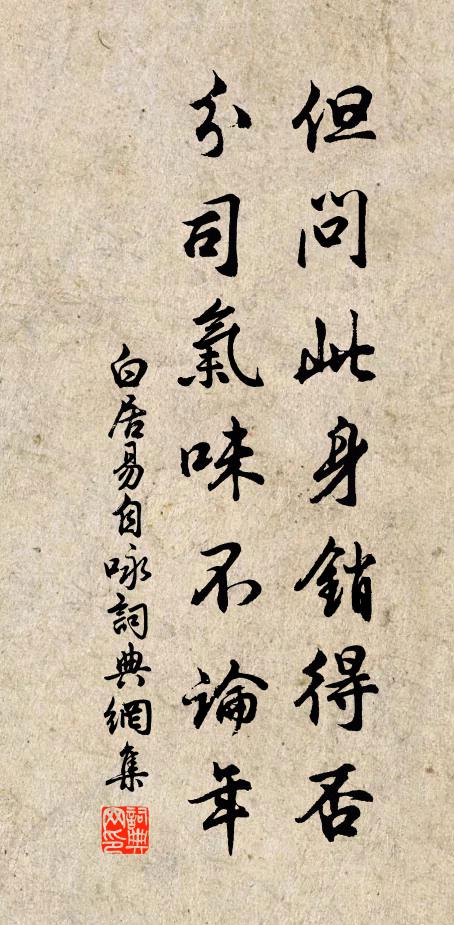 但問此身銷得否
分司氣味不論年
白居易自詠詞典網集
詞典網印